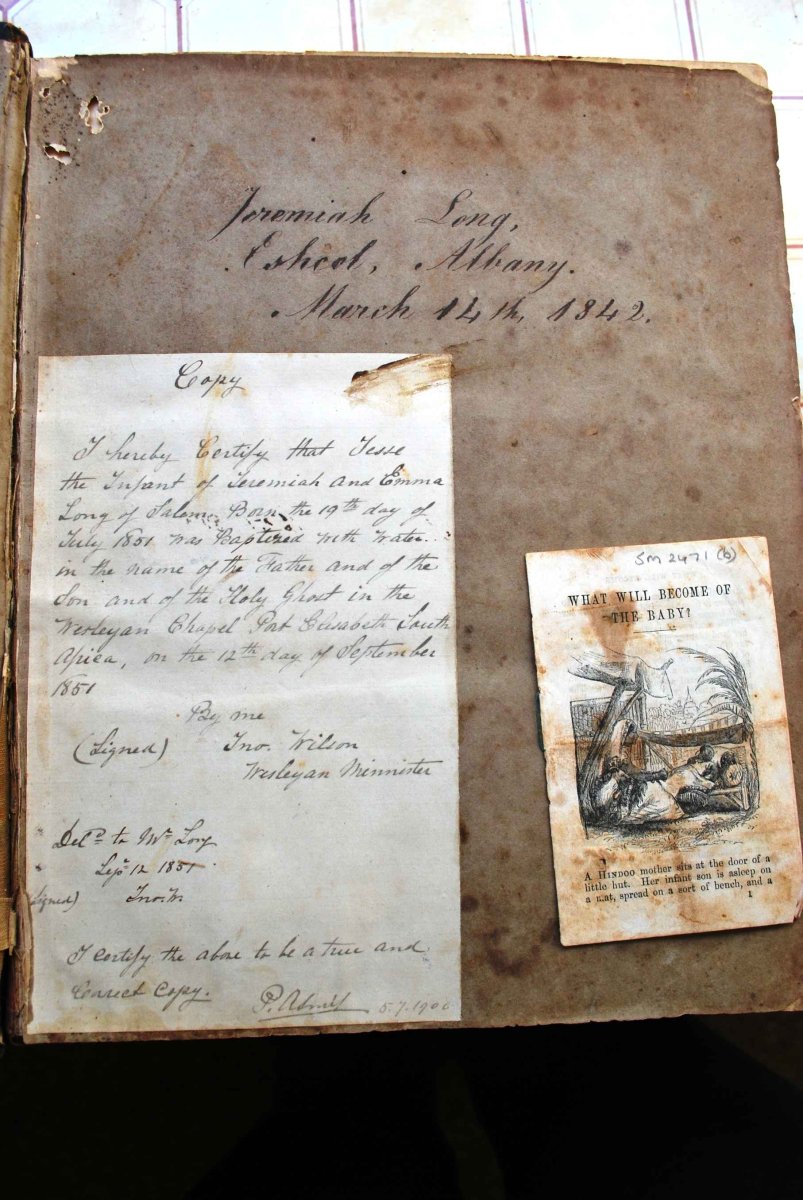 Jeremiah Long,
Eshcol, Albany.
March 14th, 1842.
Copy
I hereby Certify that Jesse
the Infant of Jeremiah and Emma
Long of Salem Born the 19th day of
July 1851 was Baptized with water
in the name of the Father and of the
Son and of the Holy Ghost in the
Wesleyan Chapel Port Elisabeth South
Africa, on the 12th day of September
1851
By me
(Signed) Jno. Wilson
Wesleyan Minnister
Deld to Mr Long
Sepr 12 1851
Signed) Jno.
I certify the above to be a true and
Correct Copy.
P. 5.7.1900
SM 2471 (b)
WHAT WILL BECOME OF
THE BABY?
A HINDOO mother sits at the door of a
little hut. Her infant son is asleep on
a mat, spread on a sort of bench, and a
1